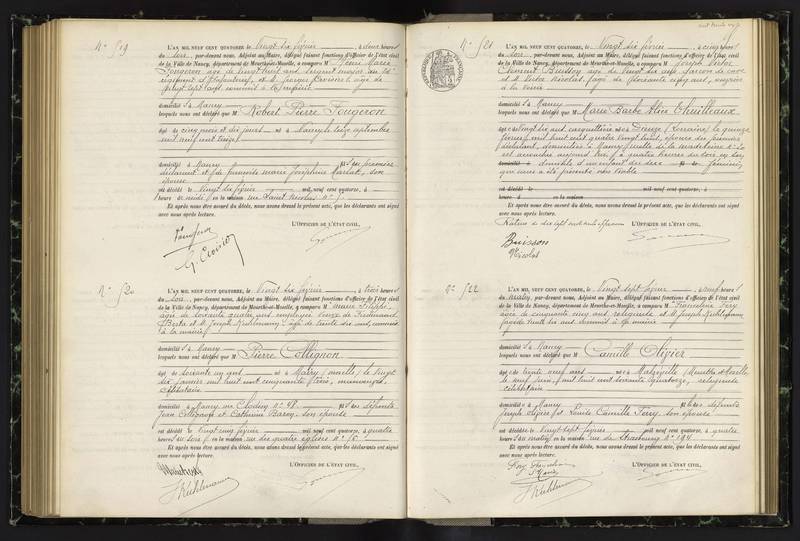 N° 519
L'AN MIL NEUF CENT QUATORZE, le Vingt six février, à deux heures
du soir, par-devant nous, Adjoint au Maire, délégué faisant fonctions d'officier de l'état civil
de la Ville de Nancy, département de Meurthe-et-Moselle, a comparu M Henri Marie
Fougeron âgé de vingt huit ans sergent major au
régiment d'Infanterie et M. Georges Croisier âgé de
vingt sept ans commis à la
domiciliés à Nancy
lesquels nous ont déclaré que M Robert Pierre Fougeron
âgé de cinq mois et dix jours né à Nancy le seize septembre
mil neuf cent treize
domicilié à Nancy fils du premier
déclarant et de Joséphine son
épouse
est décédé le vingt six février mil neuf cent quatorze, à
heures du matin en la maison rue Saint Nicolas n°
Et après nous être assuré du décès, nous avons dressé le présent acte, que les déclarants ont signé
avec nous après lecture.
L'OFFICIER DE L'ÉTAT CIVIL,
Fougeron
G. Croisier
N° 520
L'AN MIL NEUF CENT QUATORZE, le Vingt six février, à trois heures
du soir, par-devant nous, Adjoint au Maire, délégué faisant fonctions d'officier de l'état civil
de la Ville de Nancy, département de Meurthe-et-Moselle, a comparu M
âgée de soixante quatre ans employée veuve de Ferdinand
et M. Joseph Kuhlmann âgé de trente six ans, commis
à la mairie
domiciliés à Nancy
lesquels nous ont déclaré que M Pierre Collignon
âgé de soixante un ans né à (Moselle) le vingt
six janvier mil huit cent cinquante trois,
célibataire
domicilié à Nancy rue Clodion n° 48 fils de défunts
Jean Collignon et Catherine son épouse
est décédé le vingt cinq février mil neuf cent quatorze, à quatre
heures du soir en la maison rue des quatre églises n°
Et après nous être assuré du décès, nous avons dressé le présent acte, que les déclarants ont signé
avec nous après lecture.
L'OFFICIER DE L'ÉTAT CIVIL,
J Kuhlmann
N° 521
L'AN MIL NEUF CENT QUATORZE, le Vingt six février, à cinq heures
du soir, par-devant nous, Adjoint au Maire, délégué faisant fonctions d'officier de l'état civil
de la Ville de Nancy, département de Meurthe-et-Moselle, a comparu M Joseph Victor
Buisson âgé de vingt six ans garçon de cave
et M. Victor Nicolas âgé de soixante cinq ans,
à la voirie
domiciliés à Nancy
lesquels nous ont déclaré que M Marie Barbe Alice Thuilleaux
âgée de vingt six ans née à Dieuze (Lorraine) le quinze
février mil huit cent quatre vingt huit, épouse du premier
déclarant, domiciliée à Nancy ruelle de la madeleine
est accouchée aujourd'hui à quatre heures du soir en son
domicile d'un enfant du sexe féminin,
qui nous a été présenté sans vie
est décédé le mil neuf cent quatorze, à
heures en la maison
Et après nous être assuré du décès, nous avons dressé le présent acte, que les déclarants ont signé
avec nous après lecture.
L'OFFICIER DE L'ÉTAT CIVIL,
Buisson
Nicolas
N° 522
L'AN MIL NEUF CENT QUATORZE, le Vingt sept février, à neuf heures
du matin, par-devant nous, Adjoint au Maire, délégué faisant fonctions d'officier de l'état civil
de la Ville de Nancy, département de Meurthe-et-Moselle, a comparu M
âgée de cinquante cinq ans, religieuse et M. Joseph Kuhlmann
âgé de trente six ans commis à la mairie
domiciliés à Nancy
lesquels nous ont déclaré que M Camille Olivier
âgée de trente neuf ans née à (Meurthe et Moselle)
le neuf juin mil huit cent soixante quatorze, religieuse
célibataire
domiciliée à Nancy fille de défunts
Joseph Olivier et Louise Camille Ferry son épouse
est décédée le vingt sept février mil neuf cent quatorze, à quatre
heures du matin en la maison rue de Strasbourg n° 194
Et après nous être assuré du décès, nous avons dressé le présent acte, que les déclarants ont signé
avec nous après lecture.
L'OFFICIER DE L'ÉTAT CIVIL,
J Kuhlmann